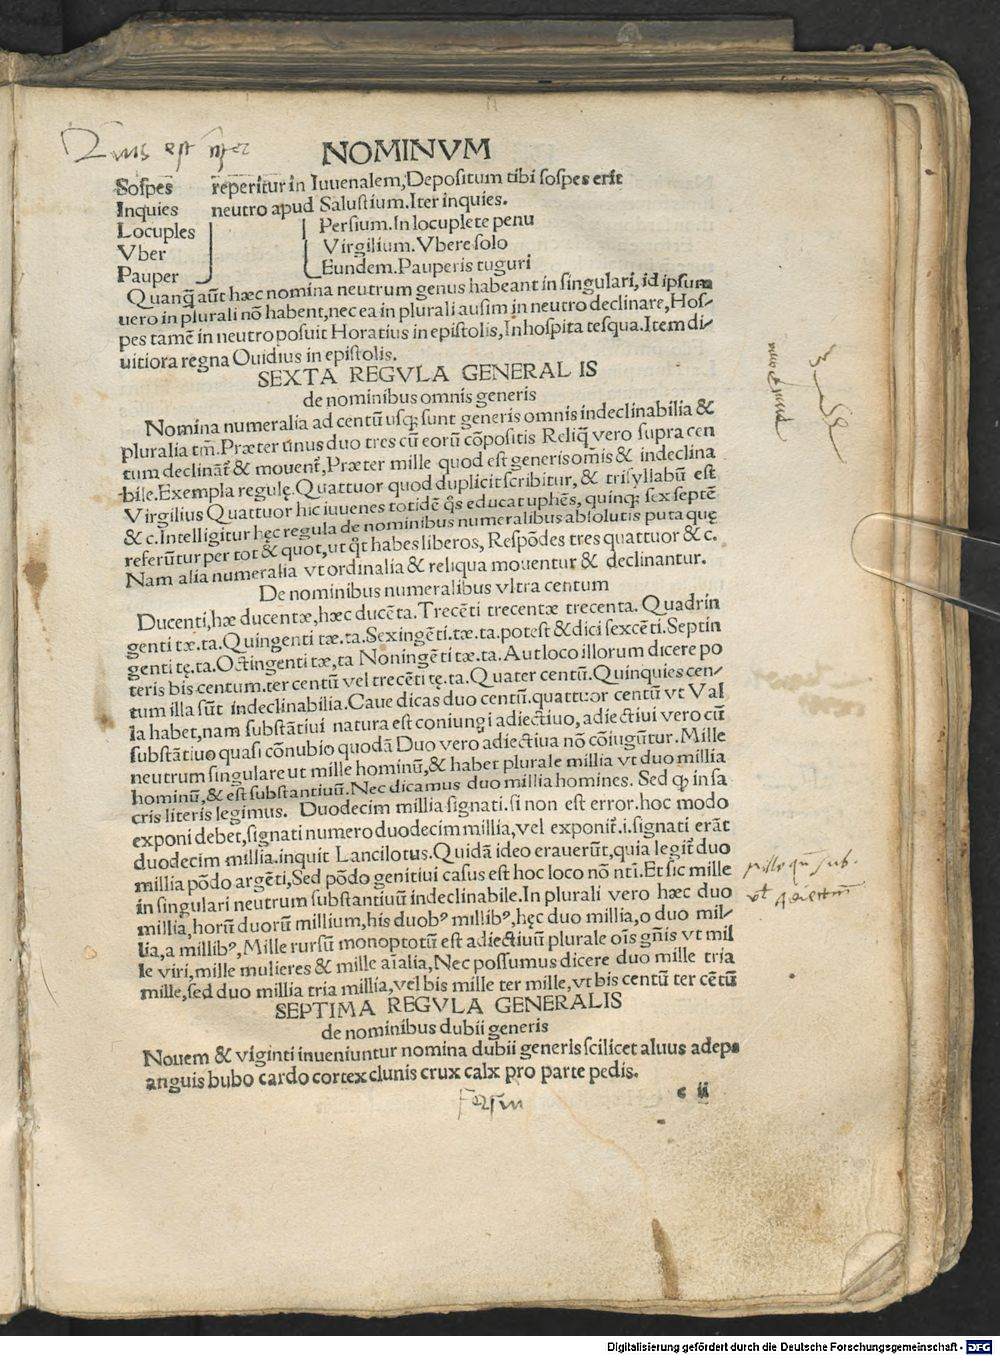 NOMINVM
Sospes reperitur in Iuuenalem, Depositum tibi sospes erit
Inquies neutro apud Salustium. Iter inquies.
Locuples Persium. In locuplete penu
Vber Virgilium. Vbere solo
Pauper Eundem. Pauperis tuguri
Quanq̃ aũt hæc nomina neutrum genus habeant in singulari, id ipsum
uero in plurali nõ habent, nec ea in plurali ausim in neutro declinare, Hos-
pes tamẽ in neutro posuit Horatius in epistolis, Inhospita tesqua. Item di-
uitiora regna Ouidius in epistolis.
SEXTA REGVLA GENERALIS
de nominibus omnis generis
Nomina numeralia ad centũ usq; sunt generis omnis indeclinabilia &
pluralia tm̃. Præter unus duo tres cũ eorũ cõpositis Reliq̃ vero supra cen
tum declinãt̃ & mouent̃, Præter mille quod est generis om̃is & indeclina
bile. Exempla regulę. Quattuor quod dupliciť scribitur, & trisyllabũ est
Virgilius Quattuor hic iuuenes totidẽ q̃s educat uphẽs, quinq; sex septẽ
& c. Intelligitur hęc regula de nominibus numeralibus absolutis puta quę
referũtur per tot & quot, ut q̃t habes liberos, Respõdes tres quattuor & c.
Nam alia numeralia vt ordinalia & reliqua mouentur & declinantur.
De nominibus numeralibus vltra centum
Ducenti, hæ ducentæ, hæc ducẽta. Trecẽti trecentæ trecenta. Quadrin
genti tæ. ta. Quingenti tæ. ta. Sexingẽti. tæ. ta. potest & dici sexcẽti. Septin
genti tę. ta. Octingenti tæ, ta Noningẽti tæ. ta. Aut loco illorum dicere po
teris bis centum. ter centũ vel trecẽti tę. ta. Quater centũ. Quinquies cen-
tum illa sũt indeclinabilia. Caue dicas duo centũ. quattuor centũ vt Val
la habet, nam substãtiui natura est coniungi adiectiuo, adiectiui vero cũ
substãtiuo quasi cõnubio quodã Duo vero adiectiua nõ cõiugũtur. Mille
neutrum singulare ut mille hominũ, & habet plurale millia vt duo millia
hominũ, & est substantiuũ. Nec dicamus duo millia homines. Sed q̃ in sa
cris literis legimus. Duodecim millia signati. si non est error. hoc modo
exponi debet, signati numero duodecim millia, vel exponit̃. i. signati erãt
duodecim millia. inquit Lancilotus. Quidã ideo erauerũt, quia legit̃ duo
millia põdo argẽti, Sed põdo genitiui casus est hoc loco nõ nti. Et sic mille
in singulari neutrum substantiuũ indeclinabile. In plurali vero hæc duo
millia, horũ duorũ millium, his duobꝰ millibꝰ, hęc duo millia, o duo mil-
lia, a millibꝰ, Mille rursũ monoptotũ est adiectiuũ plurale oĩs gñis vt mil
le viri, mille mulieres & mille aĩalia, Nec possumus dicere duo mille tria
mille, sed duo millia tria millia, vel bis mille ter mille, vt bis centũ ter cẽtũ
SEPTIMA REGVLA GENERALIS
de nominibus dubii generis
Nouem & viginti inueniuntur nomina dubii generis scilicet aluus adeps
anguis bubo cardo cortex clunis crux calx pro parte pedis.
c ii
Digitalisierung gefördert durch die Deutsche Forschungsgemeinschaft - DFG